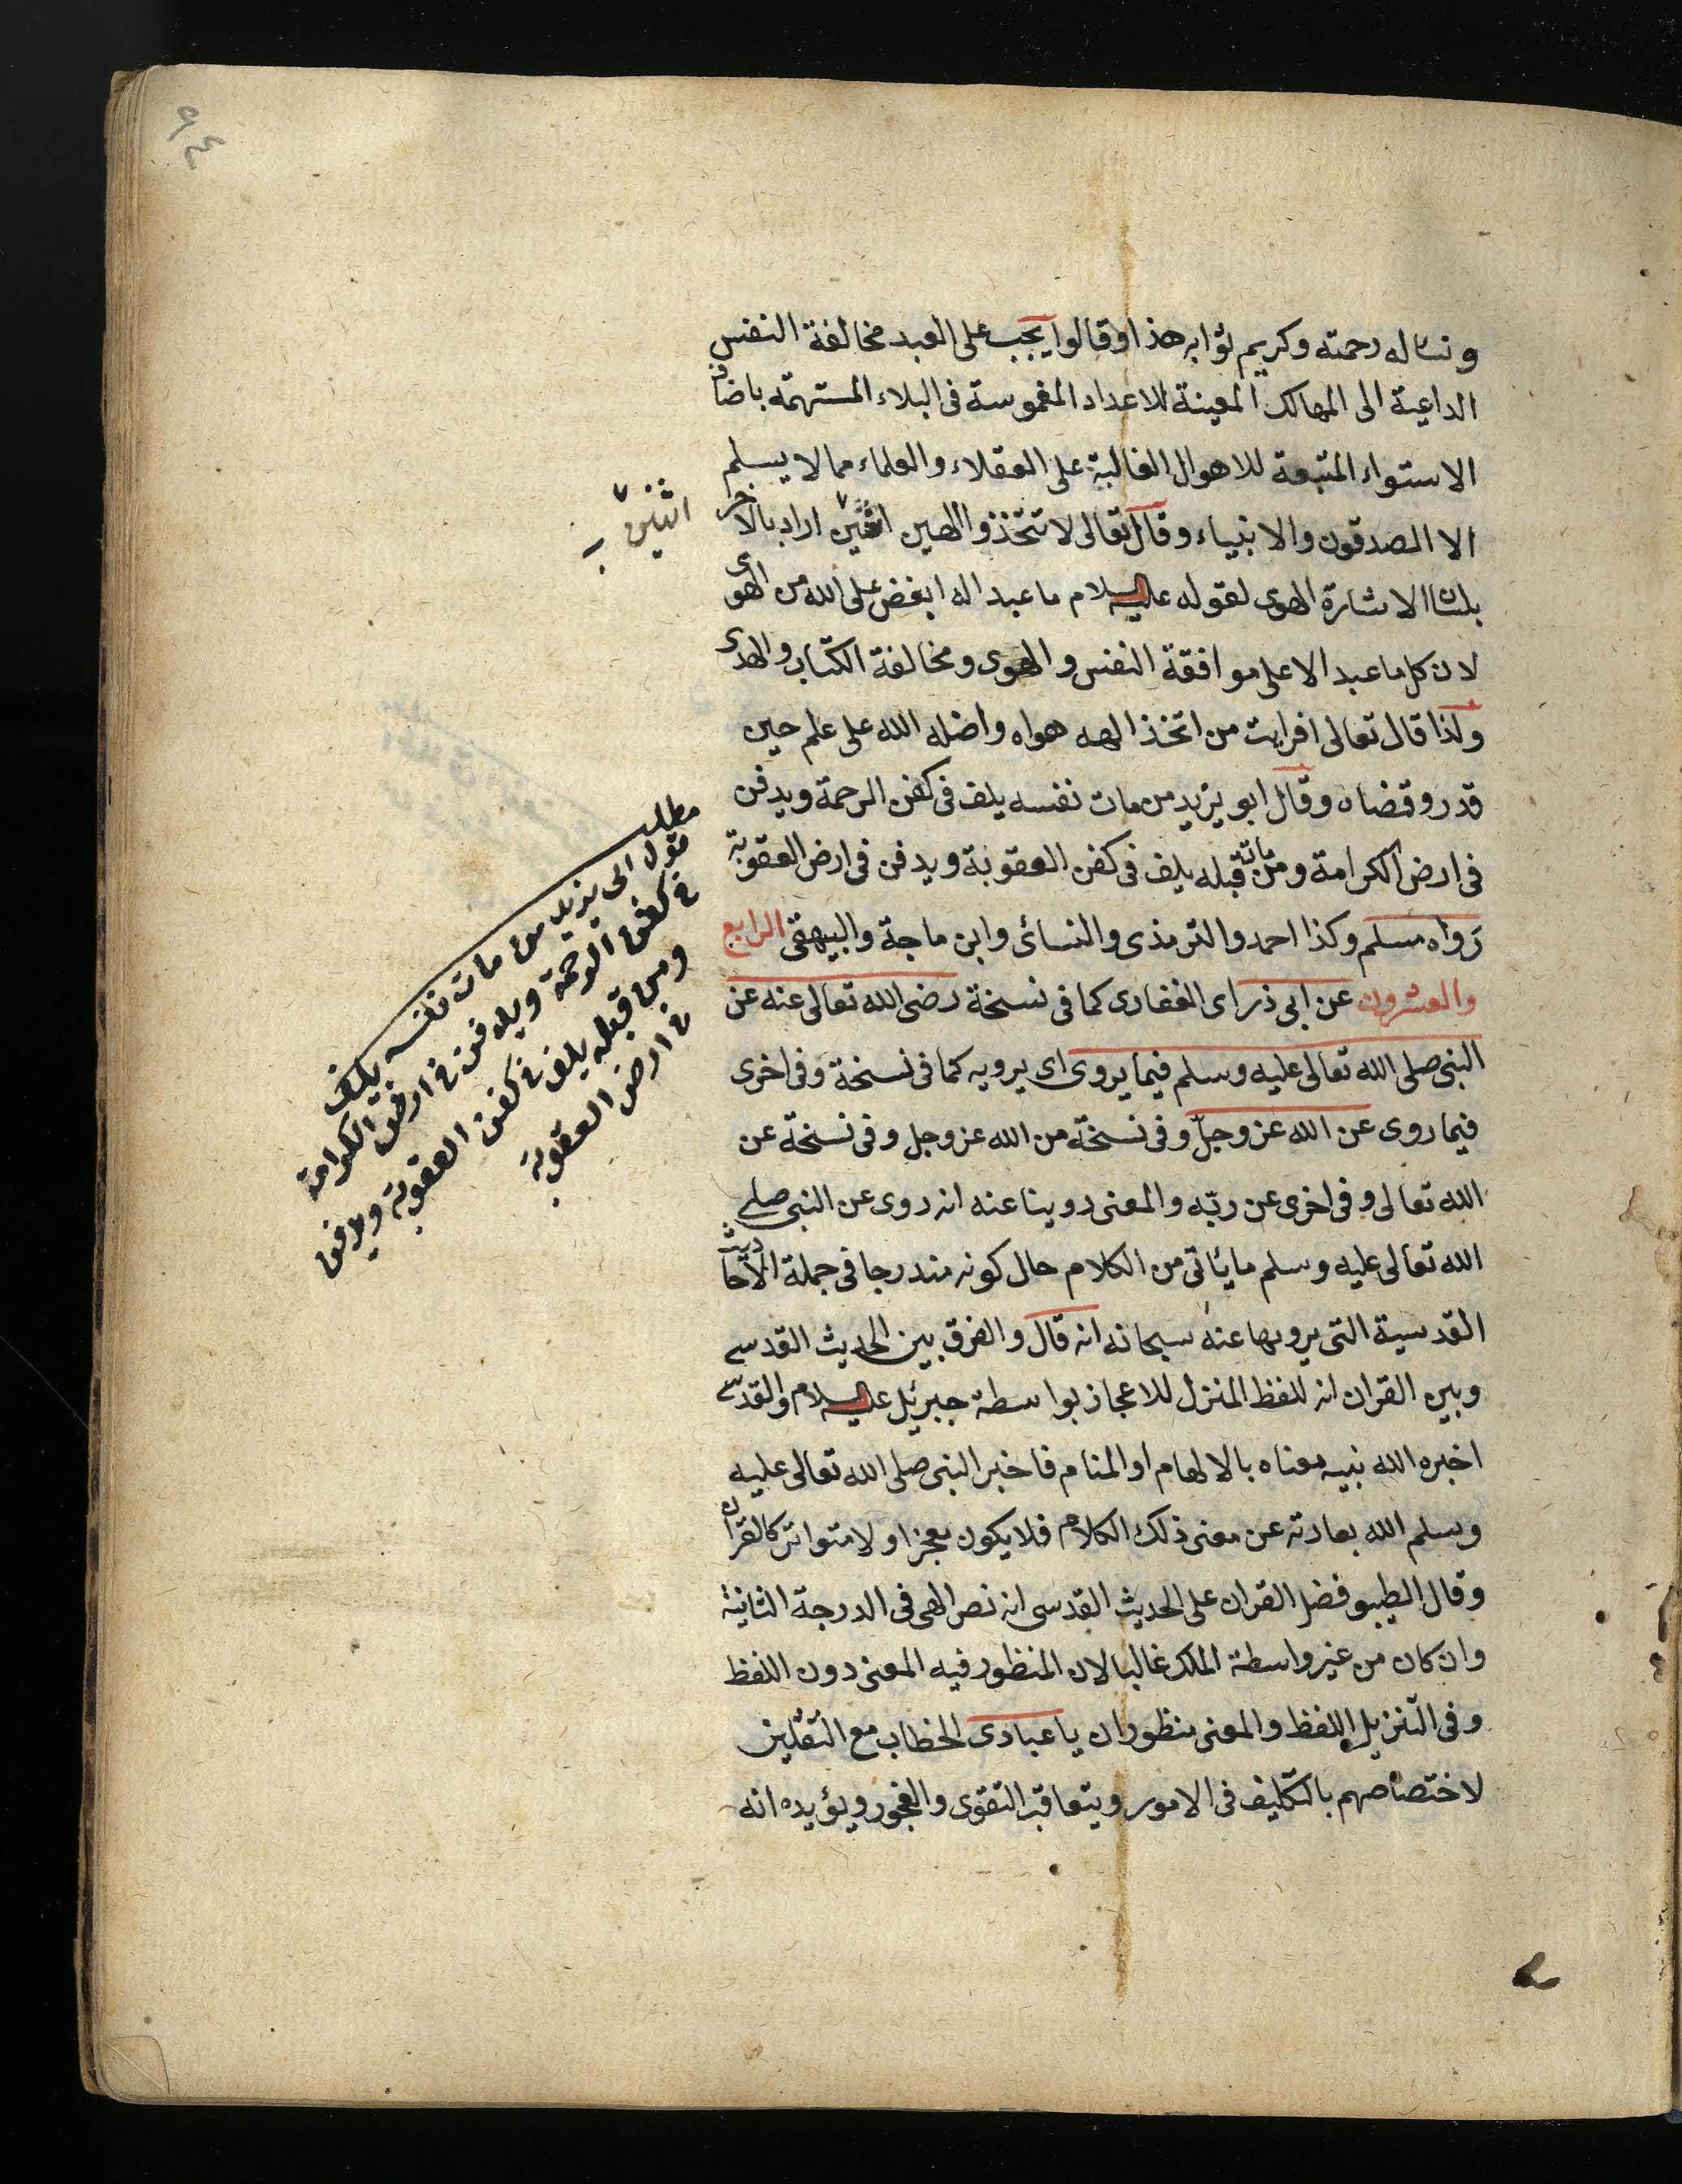 ٩٤
ونساله رحمته وكريم ثوابه هذا وقالوا يجب على العبد مخالفة النفس
الداعية الى المهالك المعينة للاعداد المغموسة فى البلاء المستهمه باضاف
الاستواء المتبعة للاهوال الغالبة على العقلاء والعلماء مما لا يسلم
الا الصدقون والانبياء وقال تعالى لا تتخذوا الهين اثنين اراد بالاخر
اثنين
بلسان الاشارة الهوى لقوله عليه السلام ما عبد اله ابغض على الله من الهوى
لان كل ما عبد الا على موافقة النفس والهوى ومخالفة الكتاب والهدى
ولذا قال تعالى افرايت من اتخذ الهه هواه واضله الله على علم حين
قدر وقضاه وقال ابو يزيد من مات نفسه يلف فى كفن الرحمة ويدفن
فى ارض الكرامة ومن مات قبله يلف فى كفن العقوبة ويدفن فى ارض العقوبة
رواه مسلم وكذا احمد والترمذى والنسائى وابن ماجة والبيهقى الرابع
والعشرون عن ابى ذر اى الغفارى كما فى نسخة رضى الله تعالى عنه عن
النبى صلى الله تعالى عليه وسلم فيما يروى اى يرويه كما فى نسخة وفى اخرى
فيما روى عن الله عز وجل وفى نسخة من الله عز وجل وفى نسخة عن
الله تعالى وفى اخرى عن ربه والمعنى روينا عنه انه روى عن النبى صلى
الله تعالى عليه وسلم ما يأتى من الكلام حال كونه مندرجا فى جملة الاحاديث
القدسية التى يرويها عنه سبحانه انه قال والفرق بين الحديث القدسى
وبين القران انه للفظ المنزل للاعجاز بواسطة جبرئيل عليه السلام والقدسى
اخبره الله نبيه معناه بالالهام او المنام فاخبر النبى صلى الله تعالى عليه
وسلم الله بعادته عن معنى ذلك الكلام فلا يكون معجزا ولا متواتر كالقران
وقال الطيبو فضل القران على الحديث القدسى انه نص الهى فى الدرجة الثانية
وان كان من غير واسطة الملك غالبا لان المنظور فيه المعنى دون اللفظ
وفى التنزيل اللفظ والمعنى منظوران يا عبادى الخطاب مع الثقلين
لاختصاصهم بالتكليف فى الامور ويتعاقب التقوى والفجور ويؤيده انه
مطلب
قول ابى يزيد من مات نفسه يلف
فى كفن الرحمة ويدفن فى ارض الكرامة
ومن قبله يلف فى كفن العقوبة ويدفن
فى ارض العقوبة